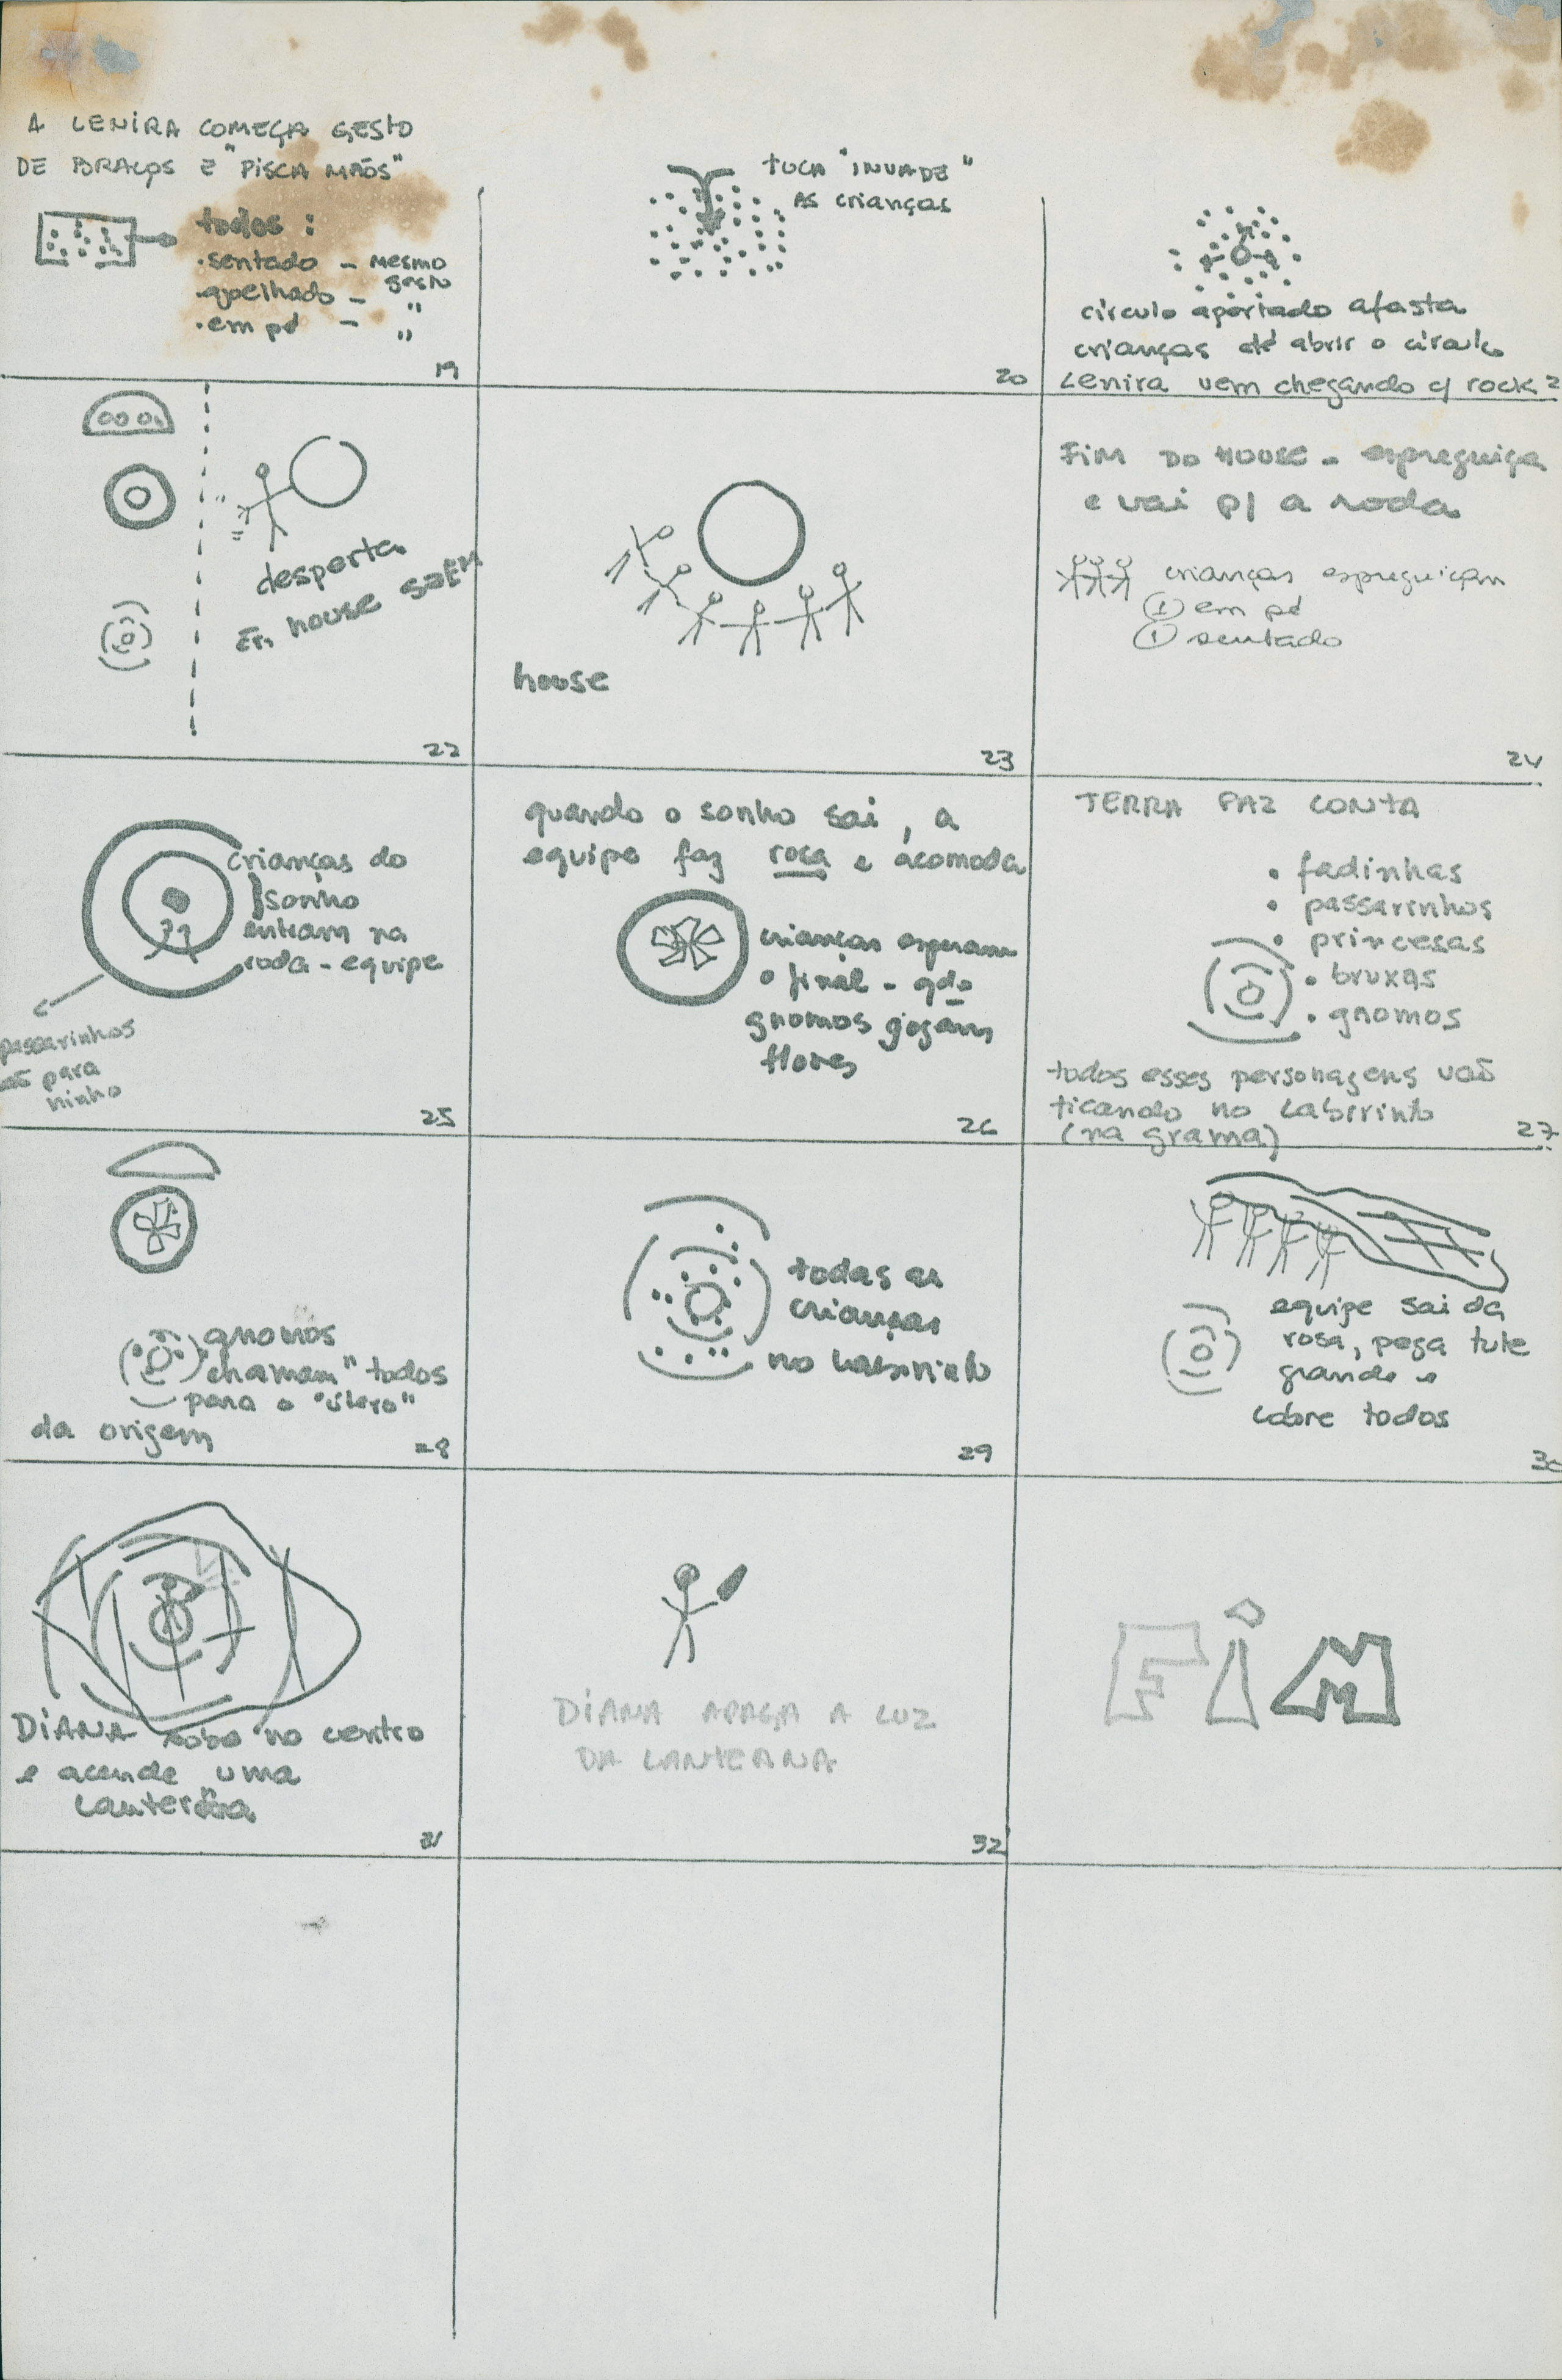 A LENIRA COMEÇA GESTO
DE BRAÇOS E "PISCA MÃOS"
todos :
.sentado - mesmo gesto
.ajoelhado - "
.em pé - "
19
TUCA "INVADE"
AS crianças
20
círculo apertado afasta
crianças até abrir o círculo
Lenira vem chegando c/ rock 2
22
desperta
Em house saem
house
23
FIM DO HOUSE - espreguiça
e vai p/ a roda
crianças espreguiçam
① em pé
① sentado
24
crianças do
sonho
entram na
roda - equipe
passarinhos
vão para
ninho
25
quando o sonho sai, a
equipe faz rosa e acomoda
crianças esperam
o final - qdo
gnomos jogam
flores
26
TERRA FAZ CONTA
• fadinhas
• passarinhos
• princesas
• bruxas
• gnomos
todos esses personagens vão
ficando no Labirinto
(na grama)
27
gnomos
chamam" todos
para o "útero"
da origem
28
todas as
crianças
no labirinto
29
equipe sai da
rosa, pega tule
grande e
cobre todos
30
DIANA sobe no centro
e acende uma
Lanterna
31
DIANA APAGA A LUZ
DA LANTERNA
32
FIM